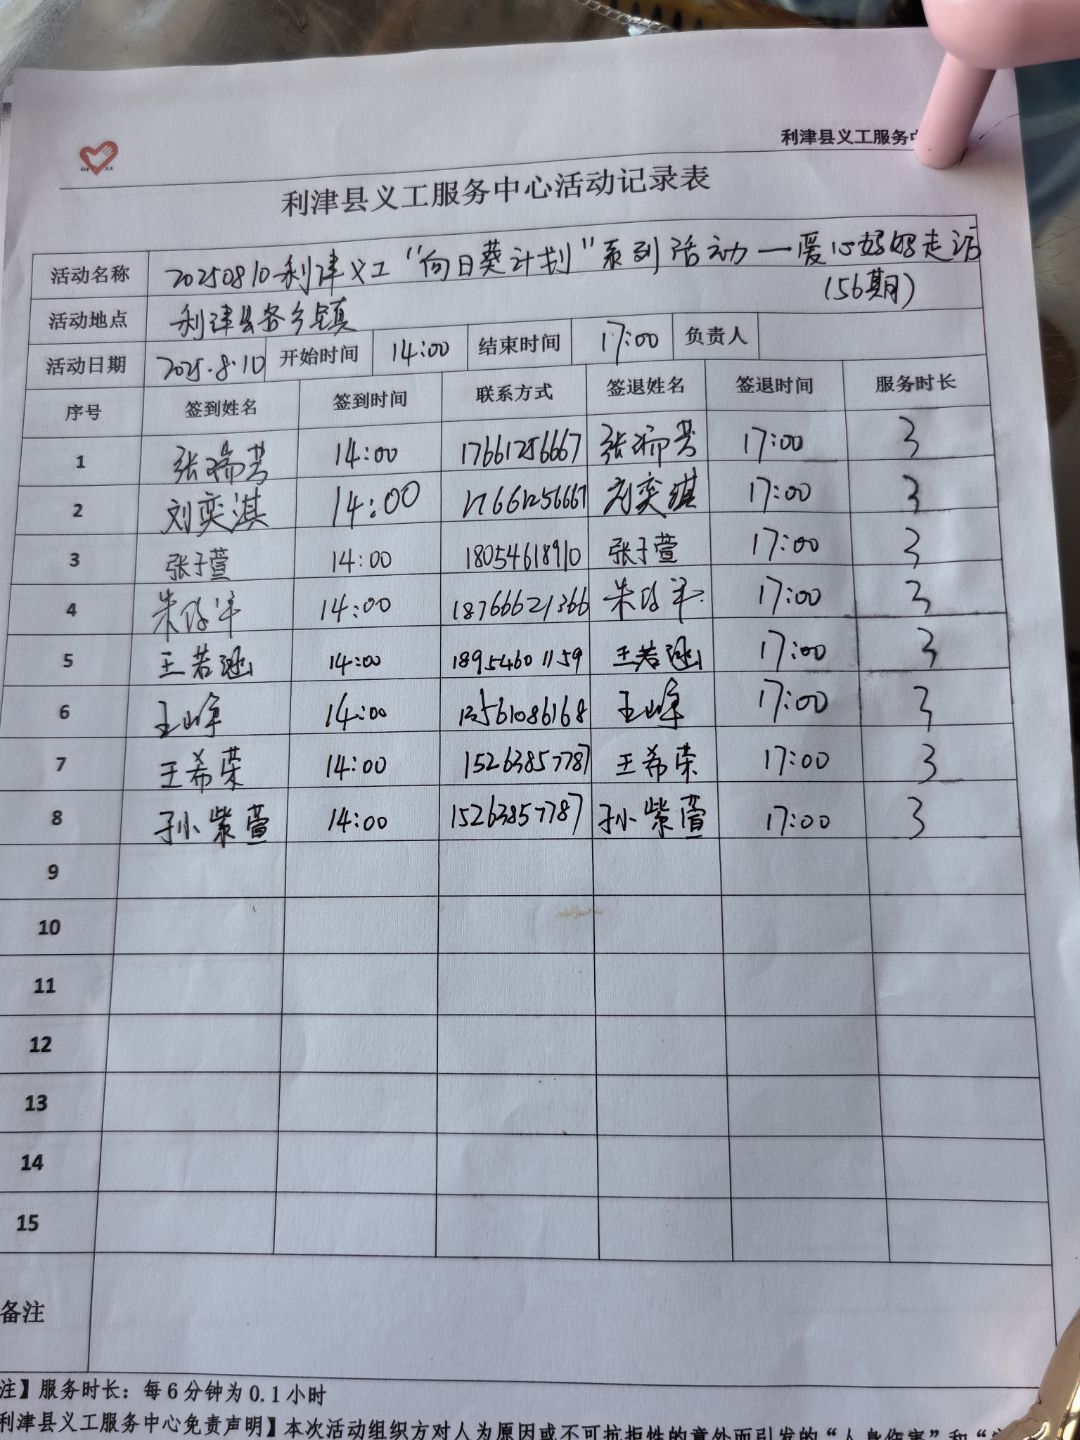 利津县义工服务中
利津县义工服务中心活动记录表
活动名称 20250810利津义工“向日葵计划”系列活动一爱心妈妈走访
(56期)
活动地点 利津县各乡镇
活动日期 2025.8.10 开始时间 14:00 结束时间 17:00 负责人
序号 签到姓名 签到时间 联系方式 签退姓名 签退时间 服务时长
1 张瑞芳 14:00 17661256667 张瑞芳 17:00 3
2 刘奕淇 14:00 17661256667 刘奕淇 17:00 3
3 张子萱 14:00 18054618910 张子萱 17:00 3
4 14:00 18766621366 17:00 3
5 王若涵 14:00 18954601159 王若涵 17:00 3
6 王峰 14:00 13561086168 王峰 17:00 3
7 王希荣 14:00 15263857787 王希荣 17:00 3
8 孙紫萱 14:00 15263857787 孙紫萱 17:00 3
9
10
11
12
13
14
15
备注
注】服务时长：每6分钟为0.1小时
利津县义工服务中心免责声明】本次活动组织方对人为原因或不可抗拒性的意外而引发的“人身伤害”和“